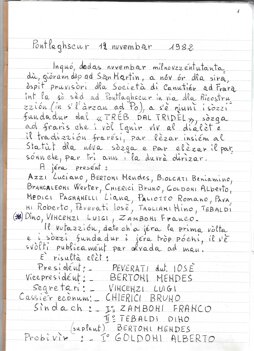 1
Pontlaghscur 12 novembar 1982
Incuó, dódas novembar milnovzzentutanta,
dù, gióran dóp ad San Martin, a nóv ór dla sira,
óspit provisóri dla Società di Canutiér ad Frara
int la so séd ad Pontlaghscur in na dla Ricostru
zzión (in s l'árzan ad Pò), a s'è riunì i sózzi
fundadur dal "TREB DAL TRIDEL", sózga
ad fraris che i vól tgnir viv al dialèt e
il tradizzión frarési, par lèzar insiém al
Statùt dla nóva sózga e par elèzar il par
sónn che, par tri ann, i la duvrà dirizar.
A jéra present:
AZZI Luciano, BERTONI Mendes, BIOLCATI Beniamino,
BRANCALEONI Werter, CHIERICI Bruno, GOLDONI Alberto,
MEDICI PAGNANELLI Liana, PALIOTTO Romano, PAVA
NI Roberto, PEVERATI Iosè, TAGLIANI Nino, TEBALDI
Dino, VINCENZI LUIGI, ZAMBONI Franco.
Il vutazzión, dato ch'a jéra la prima vòlta
e i sózzi fundadur i jéra tròp póchi, il s'è
svólti publicament par alvada ad man.
È risultà elèt:
President: - PEVERATI dut. IOSÈ
Vicepresident: - BERTONI MENDES
Segretari: - VINCENZI LUIGI
Cassiér ecónum: - CHIERICI BRUNO
Sindach: - I° ZAMBONI FRANCO
II° TEBALDI DINO
(suplent) BERTONI MENDES
Probivir: - I° GOLDONI ALBERTO